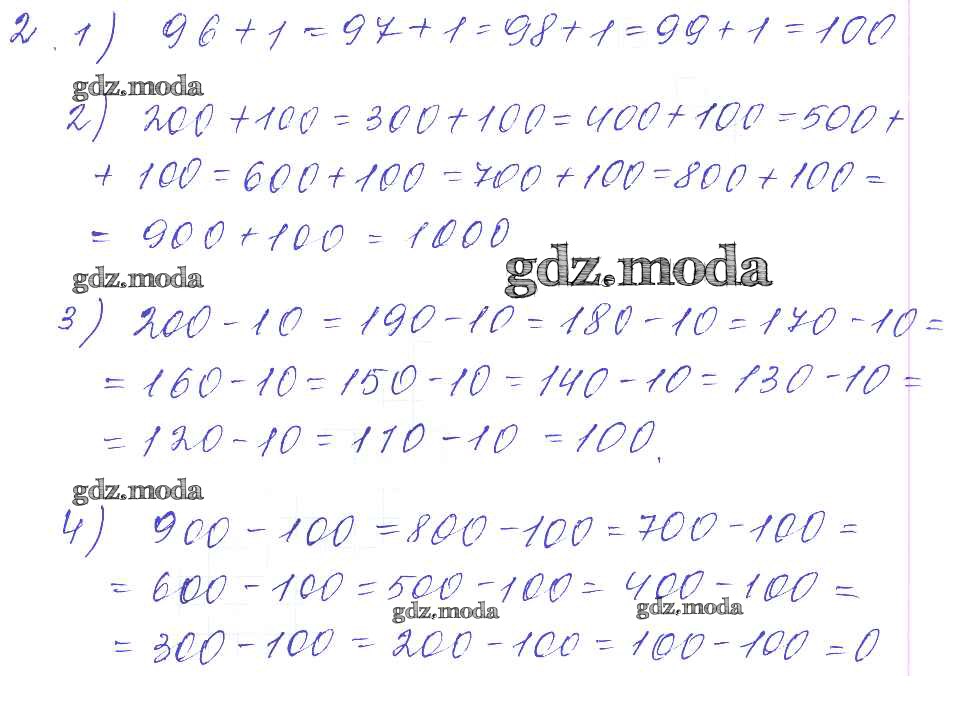 2. 1) 96 + 1 = 97 + 1 = 98 + 1 = 99 + 1 = 100
gdz.moda
2) 200 + 100 = 300 + 100 = 400 + 100 = 500 +
+ 100 = 600 + 100 = 700 + 100 = 800 + 100 =
= 900 + 100 = 1000
gdz.moda
gdz.moda
3) 200 - 10 = 190 - 10 = 180 - 10 = 170 - 10 =
= 160 - 10 = 150 - 10 = 140 - 10 = 130 - 10 =
= 120 - 10 = 110 - 10 = 100.
gdz.moda
4) 900 - 100 = 800 - 100 = 700 - 100 =
= 600 - 100 = 500 - 100 = 400 - 100 =
gdz.moda
gdz.moda
= 300 - 100 = 200 - 100 = 100 - 100 = 0